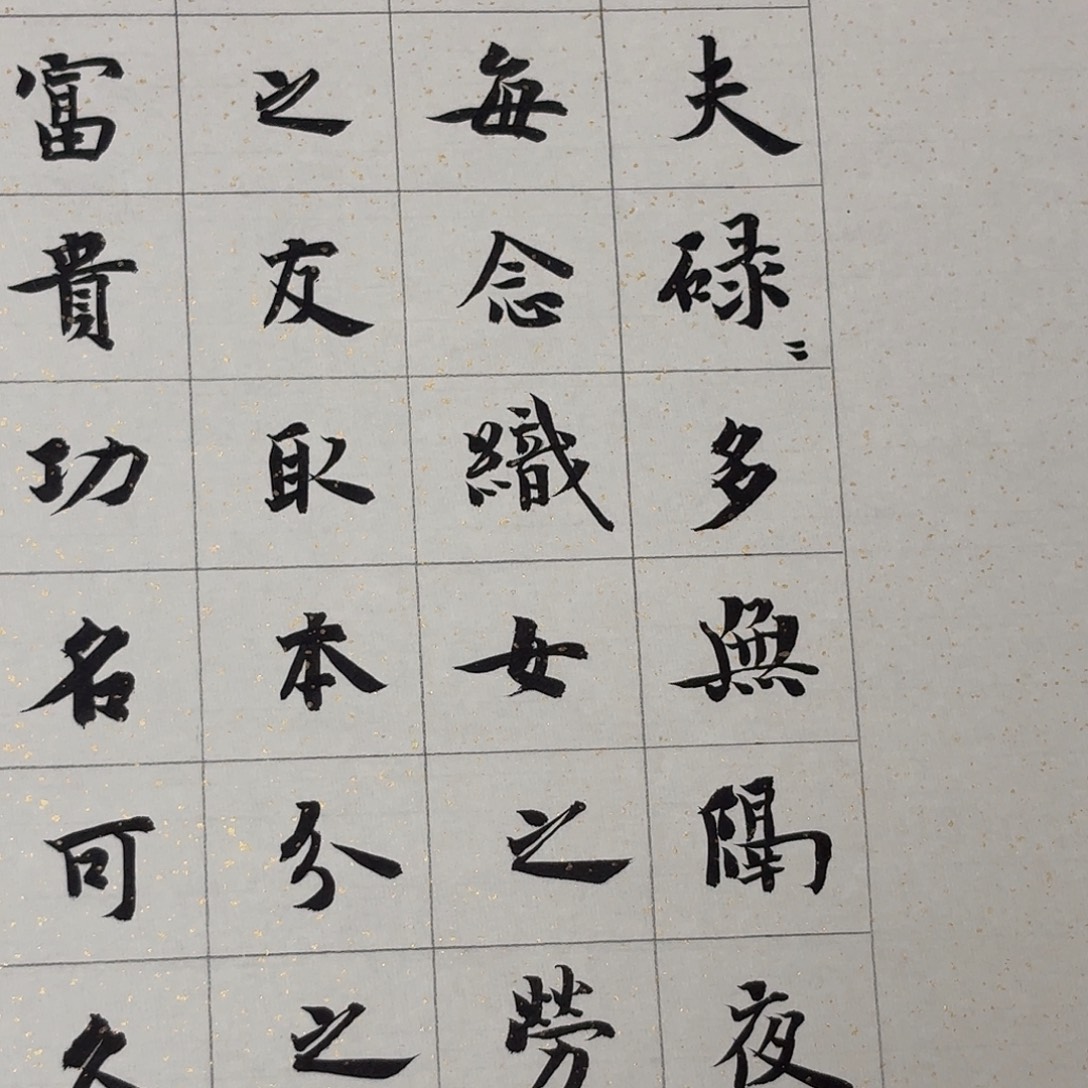 夫碌〻多無隔夜
每念織女之勞
之友取本分之
富貴功名可